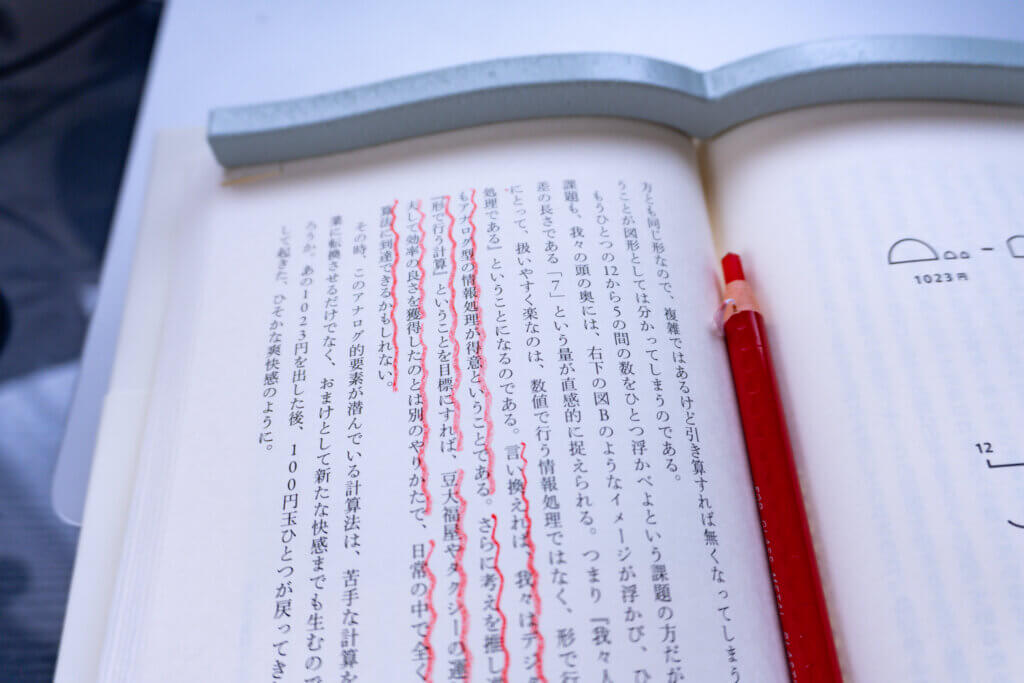 方とも同じ形なので、複雑ではあるけど引き算すれば無くなってしまう
うことが図形としては分かってしまうのである。
もうひとつの12から5の間の数をひとつ浮かべよという課題の方だが
課題も、我々の頭の奥には、右下の図Bのようなイメージが浮かび、ひ
差の長さである「7」という量が直感的に捉えられる。つまり『我々人
にとって、扱いやすく楽なのは、数値で行う情報処理ではなく、形で行
処理である』ということになるのである。言い換えれば、我々はデジ
もアナログ型の情報処理が得意ということである。さらに考えを推し
『形で行う計算』ということを目標にすれば、豆大福屋やタクシーの運
夫して効率の良さを獲得したのとは別のやりかたで、日常の中で全く
算法に到達できるかもしれない。
その時、このアナログ的要素が潜んでいる計算法は、苦手な計算を
業に転換させるだけでなく、おまけとして新たな快感までも生むので
ろうか。あの1023円を出した後、100円玉ひとつが戻ってき
して起きた、ひそかな爽快感のように。
1023円
12